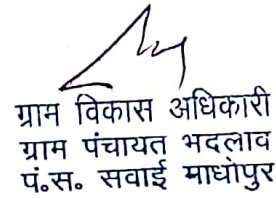 ग्राम विकास अधिकारी
ग्राम पंचायत भदलाव
पं.स. सवाई माधोपुर